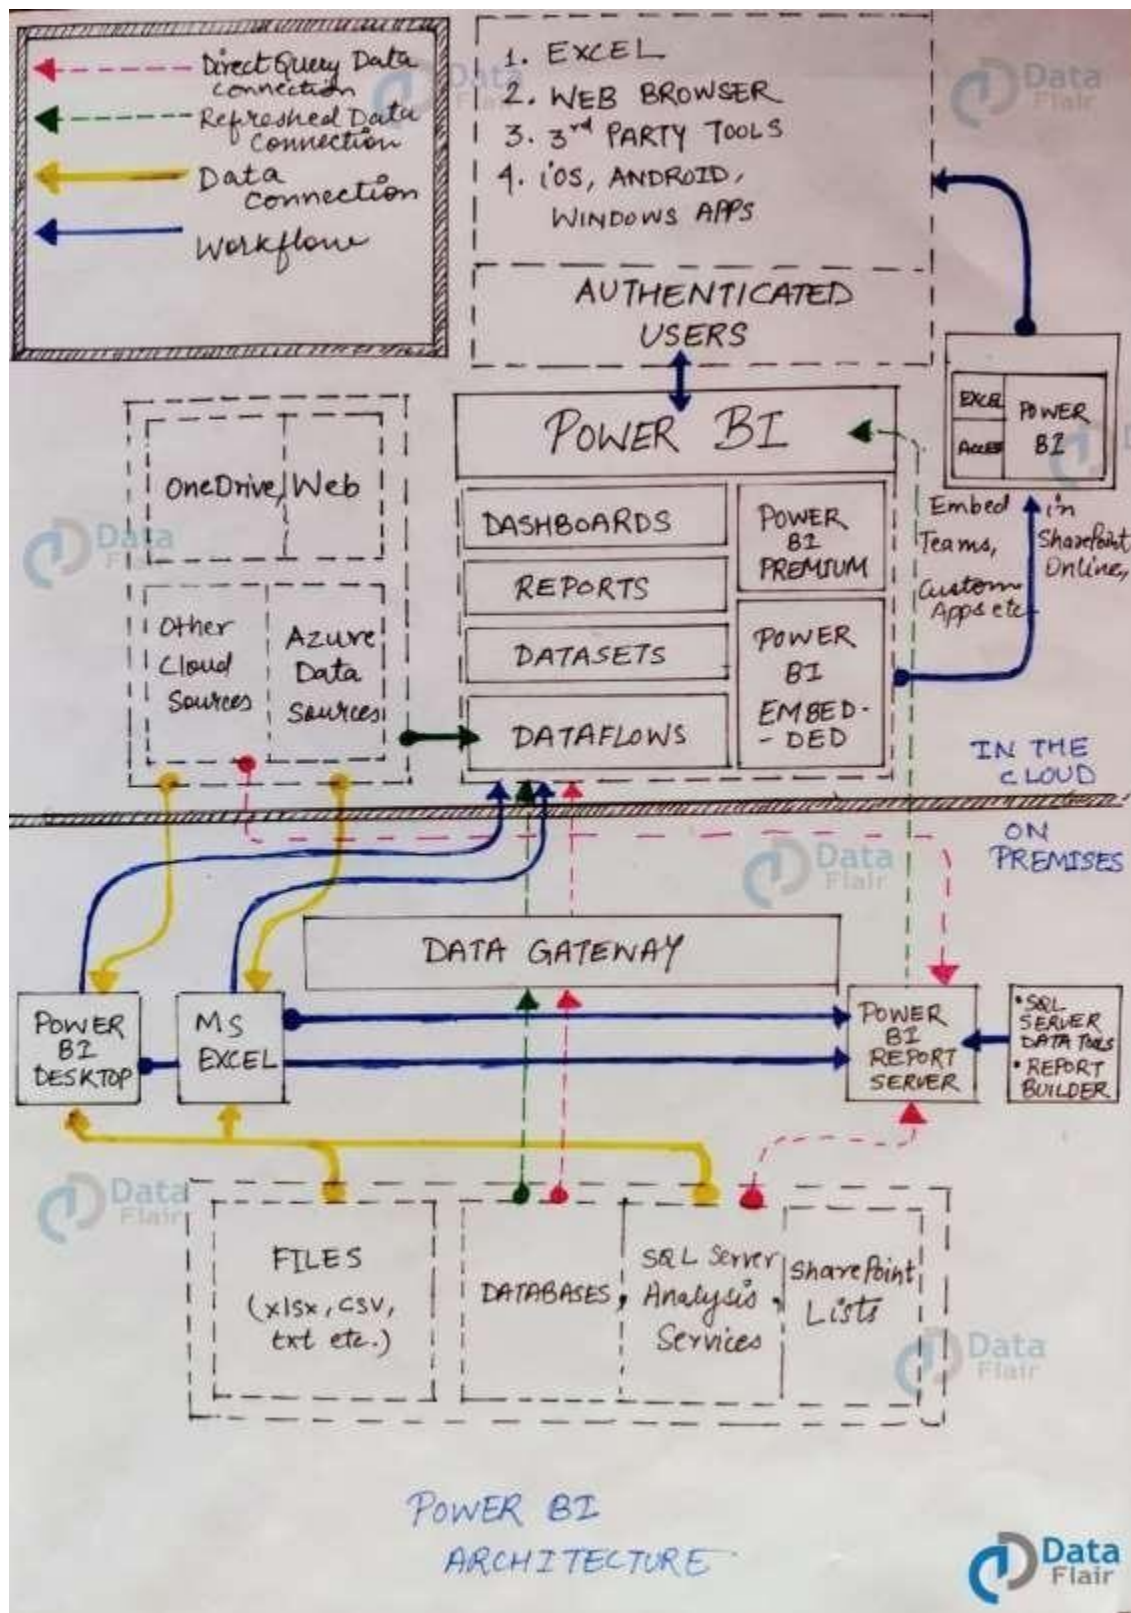 Direct Query Data
connection
Refreshed Data
Connection
Data
connection
Workflow
1. EXCEL
2. WEB BROWSER
3. 3rd PARTY TOOLS
4. iOS, ANDROID,
WINDOWS APPS
AUTHENTICATED
USERS
Data
Flair
Data
Flair
OneDrive, Web
Other
Cloud
Sources
Azure
Data
Sources
Data
Flair
POWER BI
DASHBOARDS
REPORTS
DATASETS
DATAFLOWS
POWER
BI
PREMIUM
POWER
BI
EMBED-
-DED
EXCEL
ACCESS
POWER
BI
Embed in
Teams, SharePoint
Online,
Custom
Apps etc
IN THE
CLOUD
ON
PREMISES
Data
Flair
DATA GATEWAY
POWER
BI
DESKTOP
MS
EXCEL
POWER
BI
REPORT
SERVER
• SQL
SERVER
DATA TOOLS
• REPORT
BUILDER
Data
Flair
FILES
(xlsx, csv,
txt etc.)
DATABASES,
SQL Server
Analysis
Services
SharePoint
Lists
Data
Flair
POWER BI
ARCHITECTURE
Data
Flair